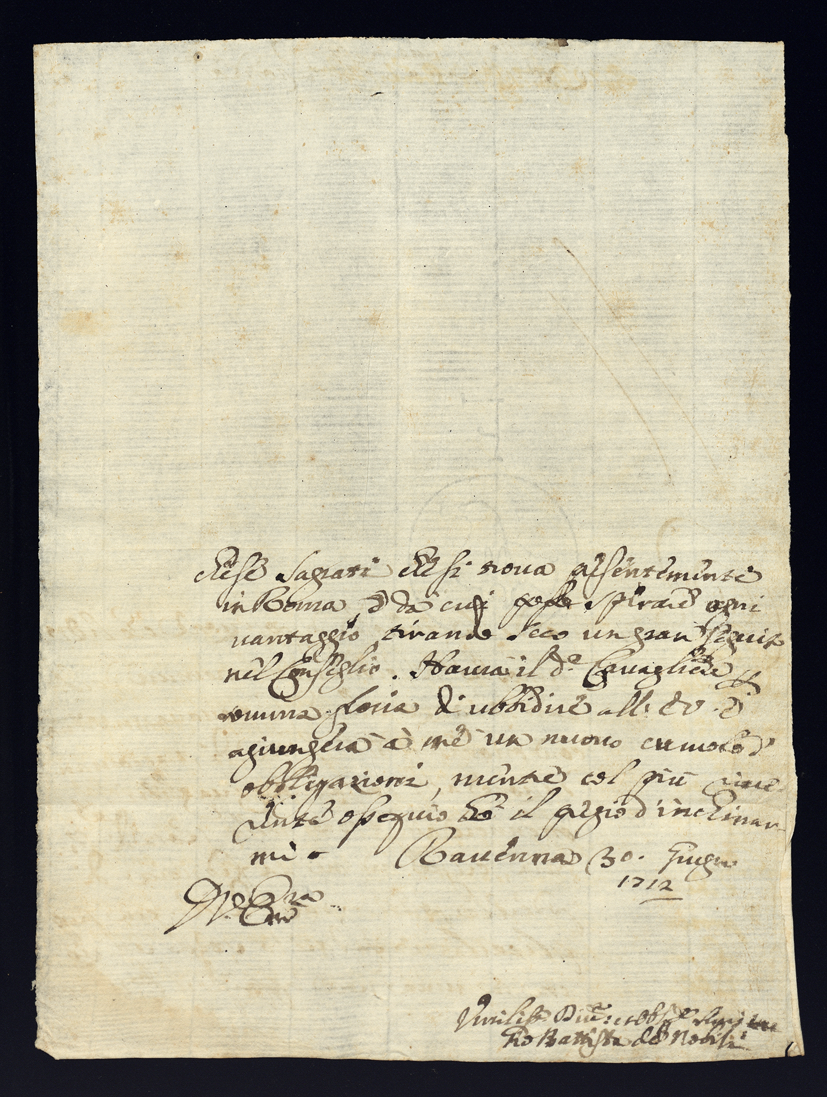 chese Sagrati che si troua presentemente
in Roma, e da cui posso sperare ogni
uantaggio, tirando seco un gran seguito
nel Consiglio. Haurà il dº. Caugliere
somma gloria di ubbidire all' E V. e
agiungerà à me un nuouo cumolo d'
obbligazioni, mentre col più riue-
rente ossequio hò il pregio d'inchinar-
mi. Rauenna 30. Giugno
1712
D. V. Emza
Gio Battista de Nobili